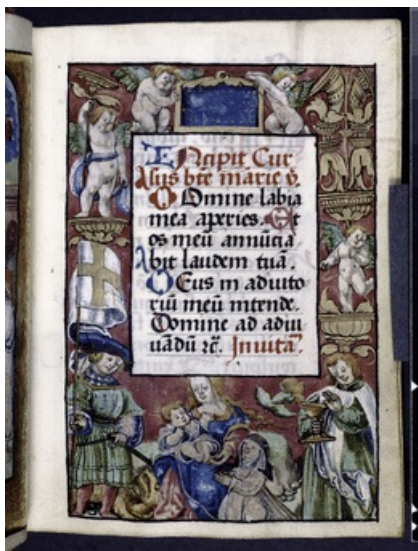 Incipit Cur
sus bte marie v̄.
Domine labia
mea aperies. Et
os meū annūcia
bit laudem tuā.
Deus in adiuto
riū meū intende.
Domine ad adiu
uādū rc̄. Inuitā.